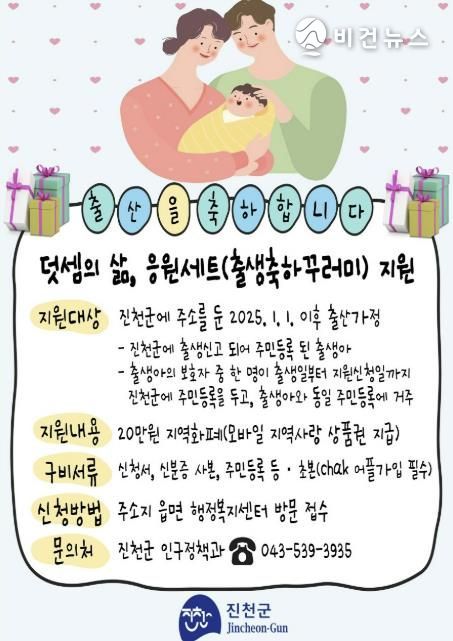 비건뉴스
출산을축하합니다
덧셈의 삶, 응원세트(출생축하꾸러미) 지원
지원대상 진천군에 주소를 둔 2025. 1. 1. 이후 출산가정
- 진천군에 출생신고 되어 주민등록 된 출생아
- 출생아의 보호자 중 한 명이 출생일부터 지원신청일까지
진천군에 주민등록을 두고, 출생아와 동일 주민등록에 거주
지원내용 20만원 지역화폐(모바일 지역사랑 상품권 지급)
구비서류 신청서, 신분증 사본, 주민등록 등·초본(chak 어플가입 필수)
신청방법 주소지 읍면 행정복지센터 방문 접수
문의처 진천군 인구정책과 ☎ 043-539-3935
진천군
Jincheon-Gun